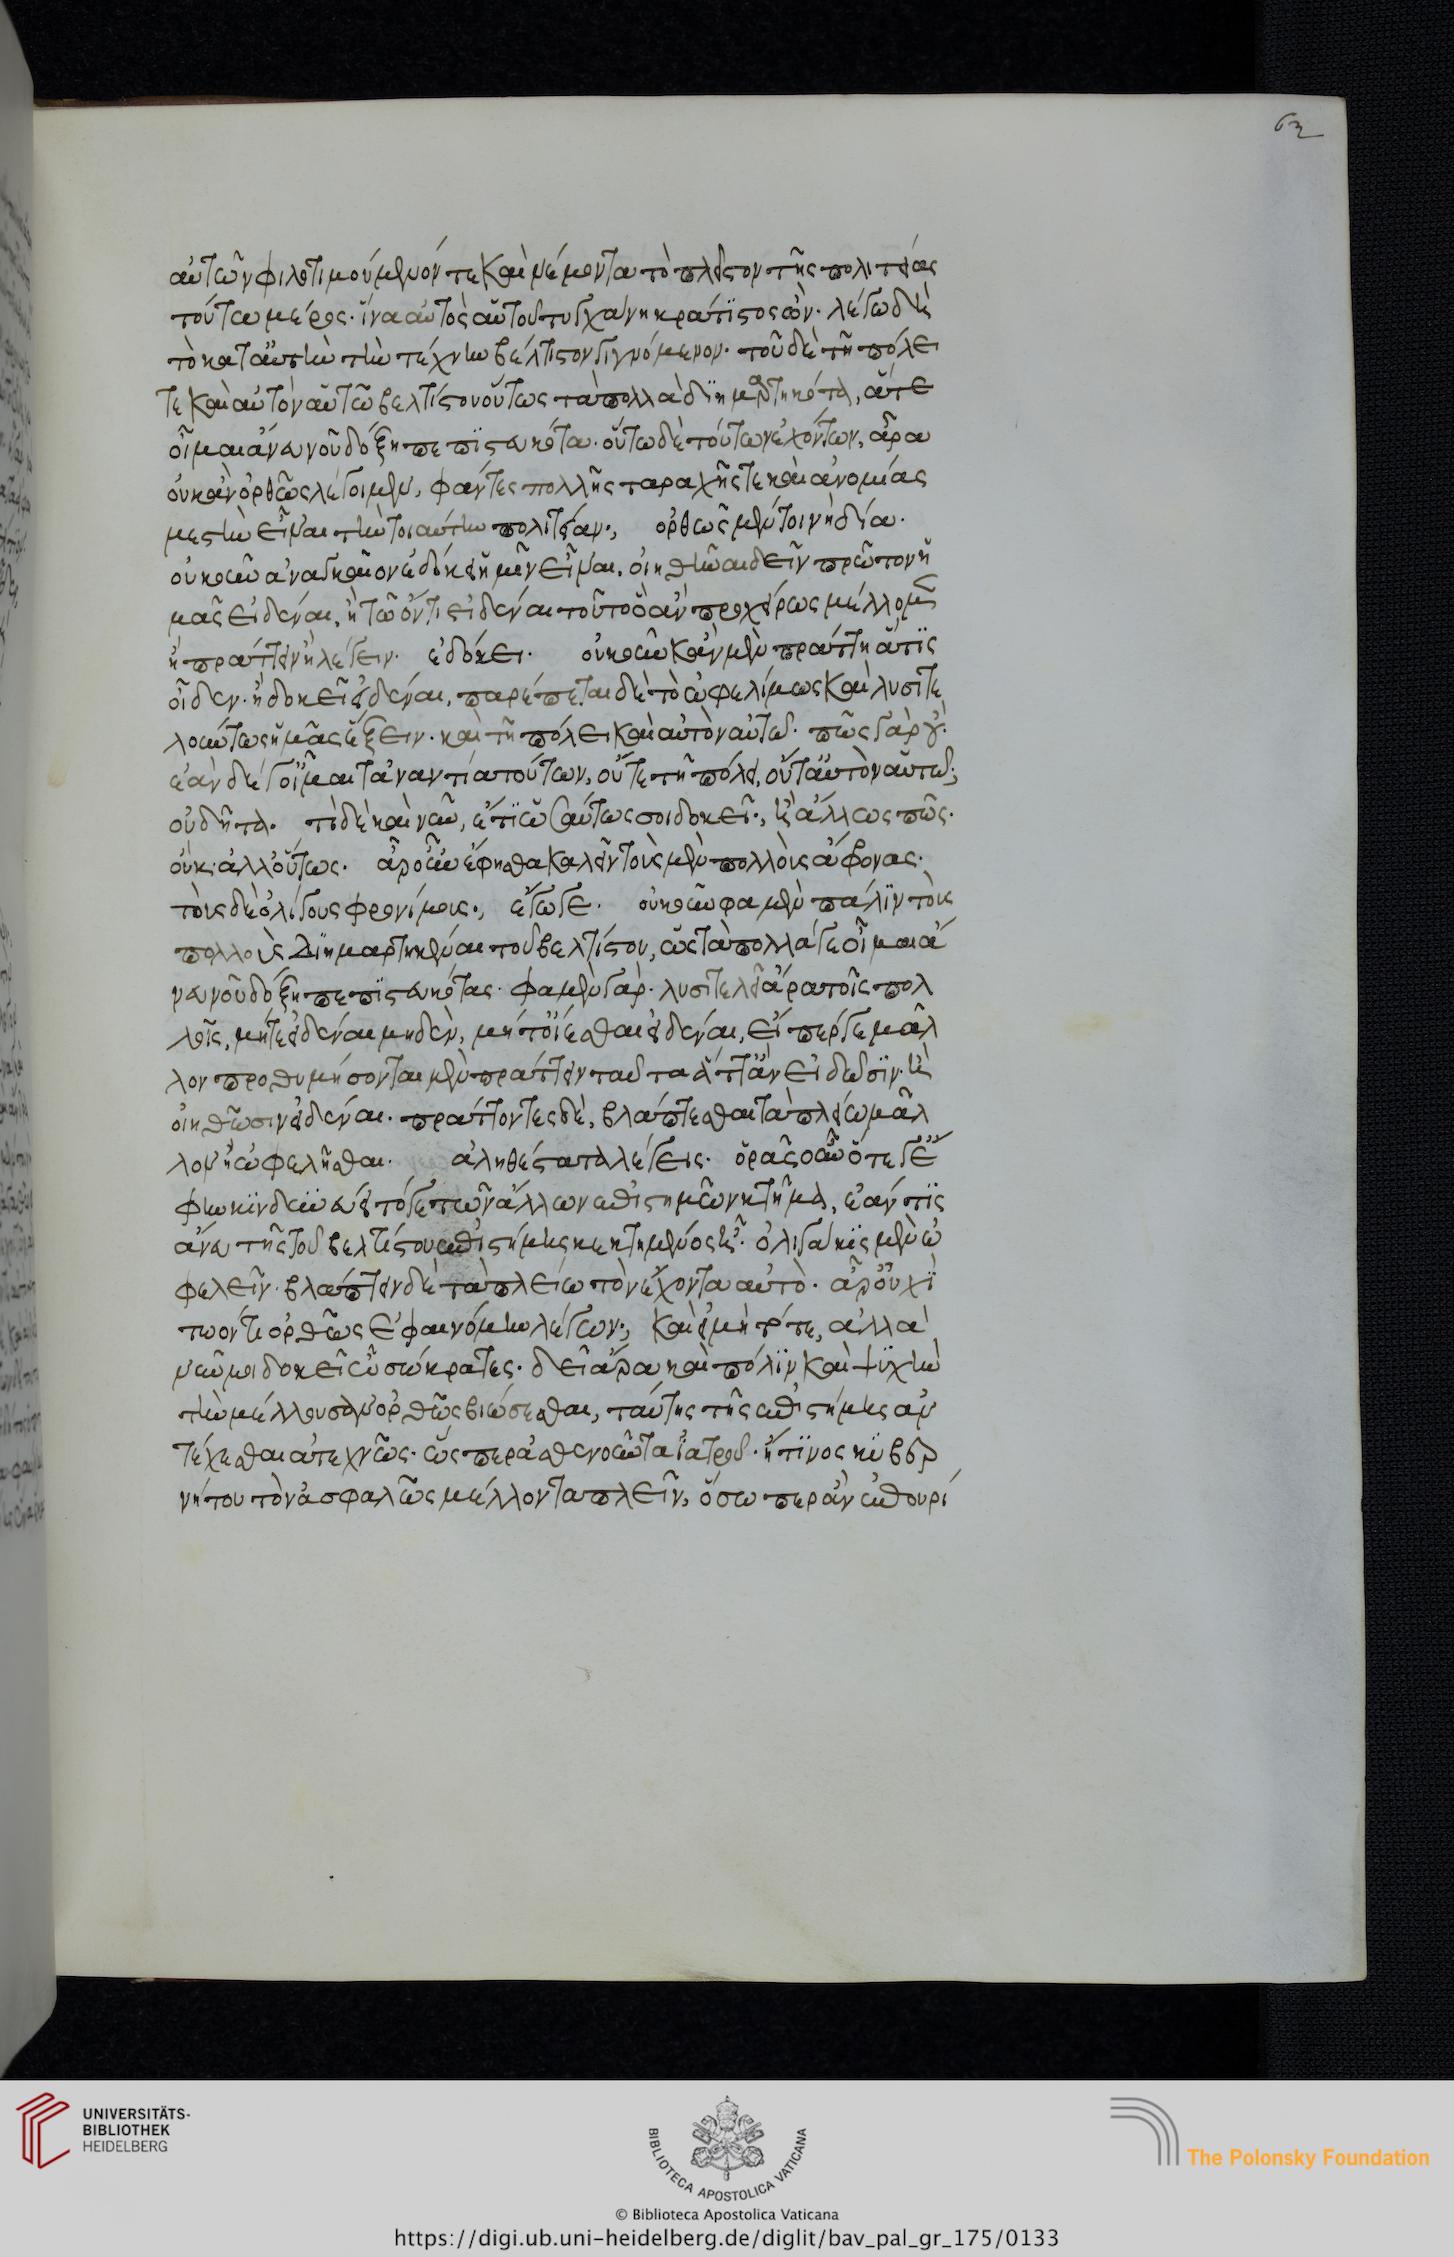 62
αὐτῶν φιλοτιμούμενόν τε καὶ νέμοντα τὸ πλεῖστον τῆς πολιτείας
τούτω μέρος· ἵνα αὐτὸς αὑτοῦ τυγχάνη κράτιστος ὤν· λέγω δὲ
τὸ κατ' αὐτὴν τὴν τέχνην βέλτιστον γιγνόμενον· τοῦ δὲ τῆ πόλει
τε καὶ αὐτὸν αὑτῶ βελτίστου οὕτως τὰ πολλὰ διημαρτηκότα, ἅτε
οἶμαι ἄνευ νοῦ δόξη πεπιστευκότα· οὕτω δὲ τούτων ἐχόντων, ἆρα
οὐκ ἂν ὀρθῶς λέγοιμεν, φάντες πολλῆς ταραχῆς τε καὶ ἀνομίας
μεστὴν εἶναι τὴν τοιαύτην πολιτείαν·, ὀρθῶς μέντοι νὴ δία·
οὐκοῦν ἀναγκαῖον ἐδόκει ἡμῖν εἶναι, οἰηθῆναι δεῖν πρῶτον ἡ
μᾶς εἰδέναι, ἢ τῶ ὄντι εἰδέναι τοῦτο ὃ ἂν προχείρως μέλλομεν
ἢ πράττειν ἢ λέγειν· ἐδόκει· οὐκοῦν κἂν μὲν πράττη ἅ τις
οἶδεν· ἢ δοκεῖ εἰδέναι, παρέπεται δὲ τὸ ὠφελίμως καὶ λυσιτε
λούντως ἡμᾶς ἕξειν· καὶ τῆ πόλει καὶ αὐτὸν αὑτῶ· πῶς γὰρ οὔ·
ἐὰν δέ γ' οἶμαι τἀναντία τούτων, οὔτε τῆ πόλει, οὔτ' αὐτὸν αὑτῶ;
οὐ δῆτα· τί δὲ καὶ νῦν, ἔτι ὡσαύτως σοι δοκεῖ·, ἢ ἄλλως πῶς·
οὔκ· ἀλλ' οὕτως· ἆρ' οὖν ἔφησθα καλεῖν τοὺς μὲν πολλοὺς ἄφρονας·
τοὺς δὲ ὀλίγους φρονίμους·, ἔγωγε· οὐκοῦν φαμὲν πάλιν τοὺς
πολλοὺς διημαρτηκέναι τοῦ βελτίστου, ὡς τὰ πολλά γε οἶμαι ἄ
νευ νοῦ δόξη πεπιστευκότας· φαμὲν γάρ· λυσιτελεῖ ἄρα τοῖς πολ
λοῖς, μήτε εἰδέναι μηδὲν, μήτ' οἴεσθαι εἰδέναι, εἴπερ γε μᾶλ
λον προθυμήσονται μὲν πράττειν ταῦτα ἅττ' ἂν εἰδῶσιν· ἢ
οἰηθῶσιν εἰδέναι· πράττοντες δὲ, βλάπτεσθαι τὰ πλείω μᾶλ
λον ἢ ὠφελῆσθαι· ἀληθέστατα λέγεις· ὁρᾶς οὖν ὅτε γ' ἔ
φην κινδυνεύειν τό γε τῶν ἄλλων ἐπιστημῶν κτῆμα, ἐάν τις
ἄνευ τῆς τοῦ βελτίστου ἐπιστήμης κεκτημένος ἦ· ὀλιγάκις μὲν ὠ
φελεῖν· βλάπτειν δὲ τὰ πλείω τὸν ἔχοντα αὐτὸ· ἆρ' οὐχὶ
τῶ ὄντι ὀρθῶς ἐφαινόμην λέγων·, καὶ εἰ μὴ τότε, ἀλλὰ
νῦν μοι δοκεῖ ὦ σώκρατες· δεῖ ἄρα καὶ πόλιν καὶ ψυχὴν
τὴν μέλλουσαν ὀρθῶς βιώσεσθαι, ταύτης τῆς ἐπιστήμης ἀν
τέχεσθαι ἀτεχνῶς· ὥσπερ ἀσθενοῦντα ἰατροῦ· ἤ τινος κυβερ
νήτου τὸν ἀσφαλῶς μέλλοντα πλεῖν, ὅσω περ ἂν ἐπουρί
UNIVERSITÄTS-
BIBLIOTHEK
HEIDELBERG
BIBLIOTECA APOSTOLICA VATICANA
The Polonsky Foundation
© Biblioteca Apostolica Vaticana
https://digi.ub.uni-heidelberg.de/diglit/bav_pal_gr_175/0133